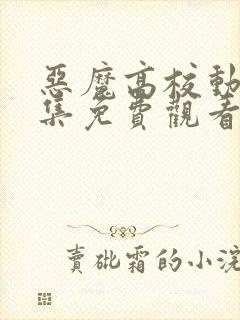 惡魔高校動
集免費觀看
賣砒霜的小浣